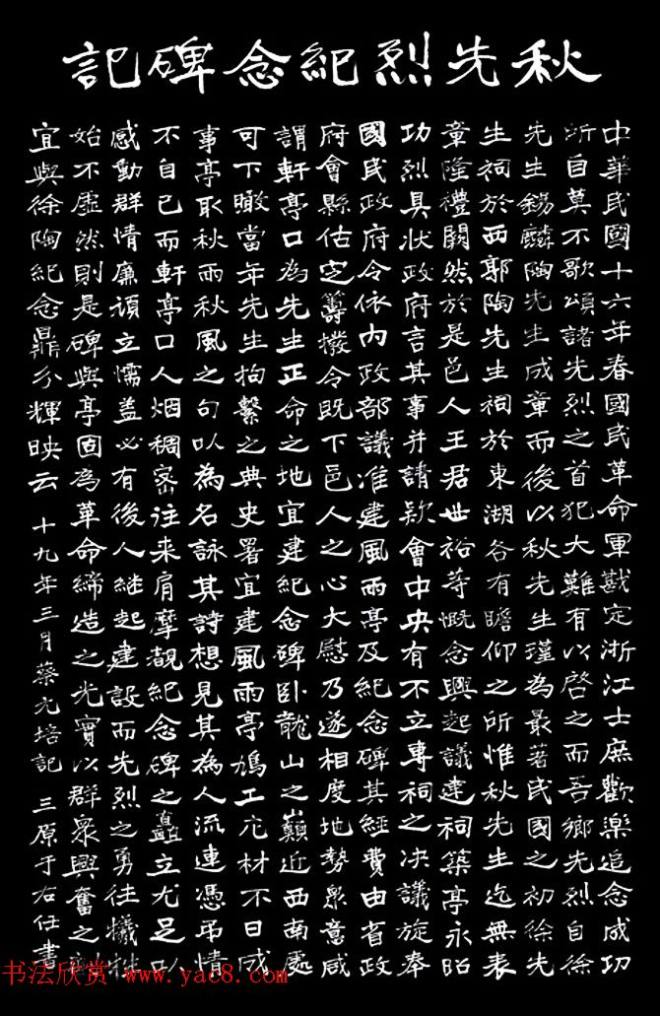 秋先烈紀念碑記
中華民國十六年春國民革命軍戡定浙江士庶歡樂追念成功
所自莫不歌頌諸先烈之首犯大難有以啓之而吾鄉先烈自徐
先生錫麟陶先生成章而後以秋先生瑾為最著民國之初徐先
生祠於西郭陶先生祠於東湖各有瞻仰之所惟秋先生迄無表
章隆禮闕然於是邑人王君世裕等慨念興起議建祠築亭永昭
功烈具狀政府言其事并請款會中央有不立專祠之決議旋奉
國民政府令依內政部議准建風雨亭及紀念碑其經費由省政
府會縣估定籌撥令既下邑人之心大慰乃遂相度地勢眾意咸
謂軒亭口為先生正命之地宜建紀念碑卧龍山之巔近西南處
可下瞰當年先生拘繫之典史署宜建風雨亭鳩工庀材不日成
事亭取秋雨秋風之句以為名詠其詩想見其為人流連憑弔情
不自已而軒亭口人烟稠密往來肩摩覩紀念碑之矗立尤足以
感動群情廉頑立懦蓋必有後人継起建設而先烈之勇往犧牲
始不虛然則是碑與亭固為革命締造之光實以群眾興奮之劑
宜與徐陶紀念鼎分輝映云 十九年三月蔡元培記 三原于右任書
书法欣赏 www.yac8.com